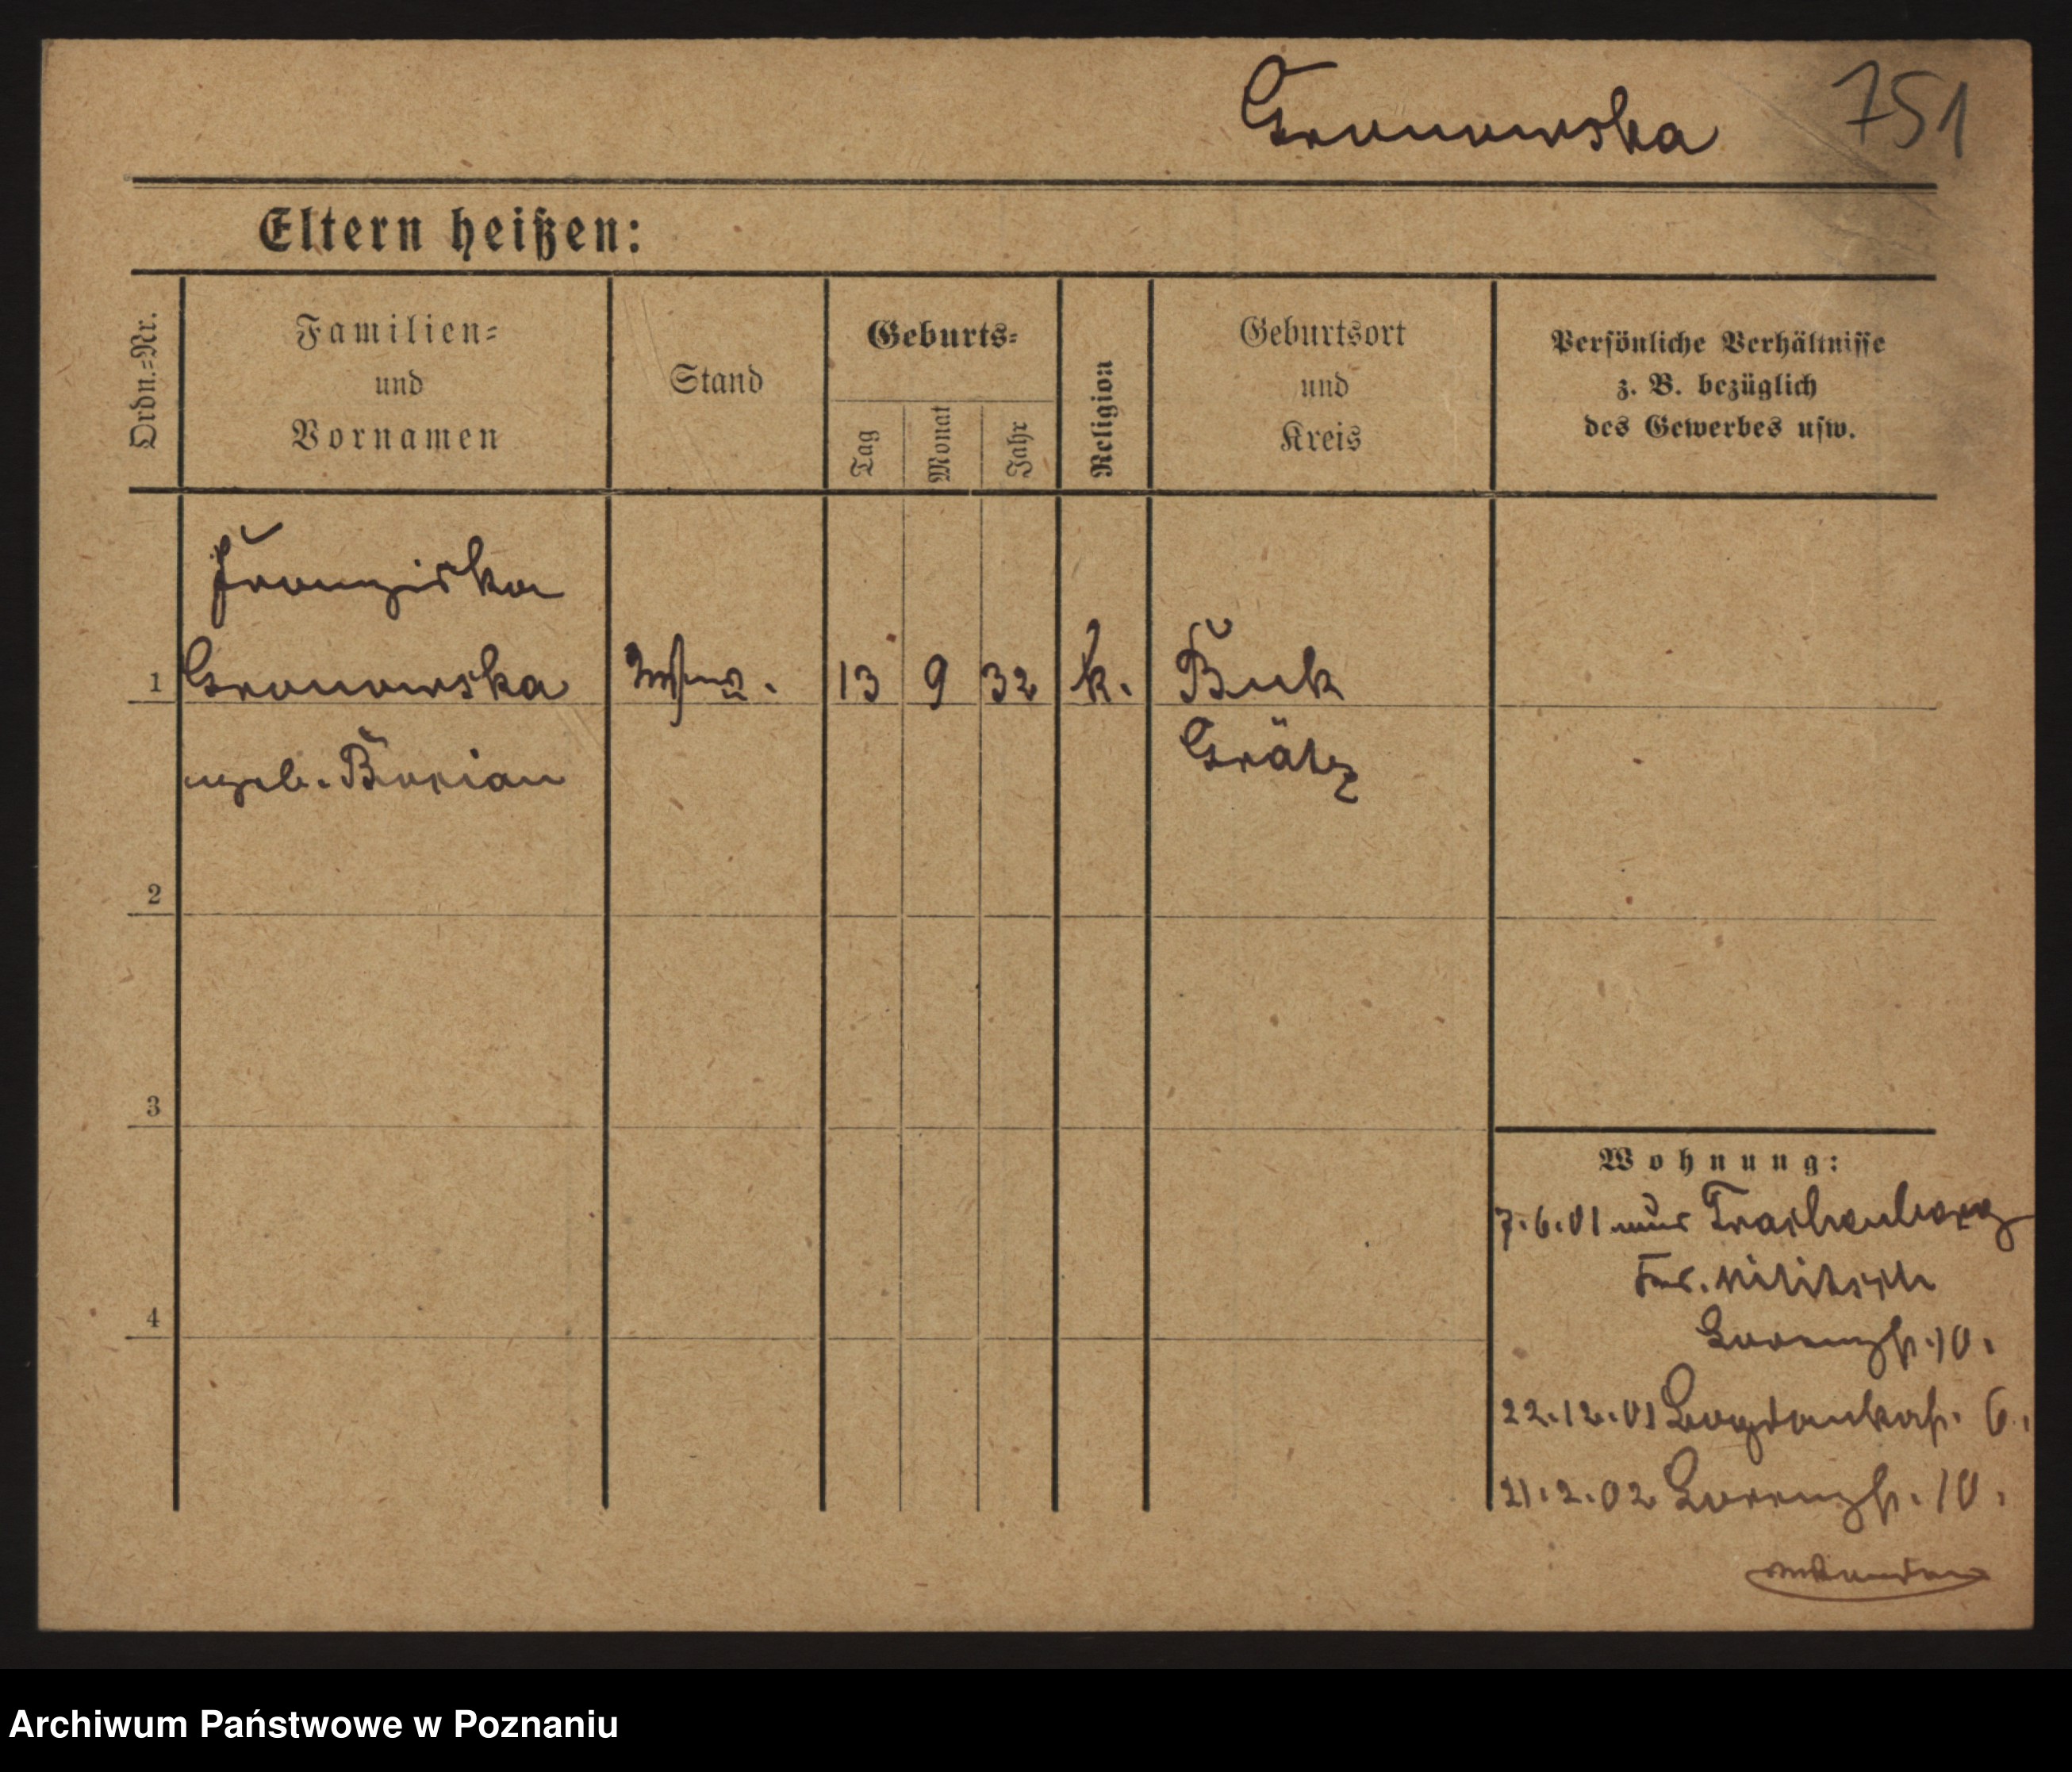 Gronowska 751
Eltern heißen:
Ordn.=Nr.
Familien=
und
Vornamen
Stand
Geburts=
Tag
Monat
Jahr
Religion
Geburtsort
und
Kreis
Persönliche Verhältnisse
z. B. bezüglich
des Gewerbes usw.
Franziska
1 Gronowska 13 9 32 k. Buk
geb. Burian Grätz
2
3
4
Wohnung:
7.6.01 aus Trachenberg
Militsch
Lorenzstr. 10.
22.12.01 Bogdankastr. 6.
21.2.02 Lorenzstr. 10.
Archiwum Państwowe w Poznaniu